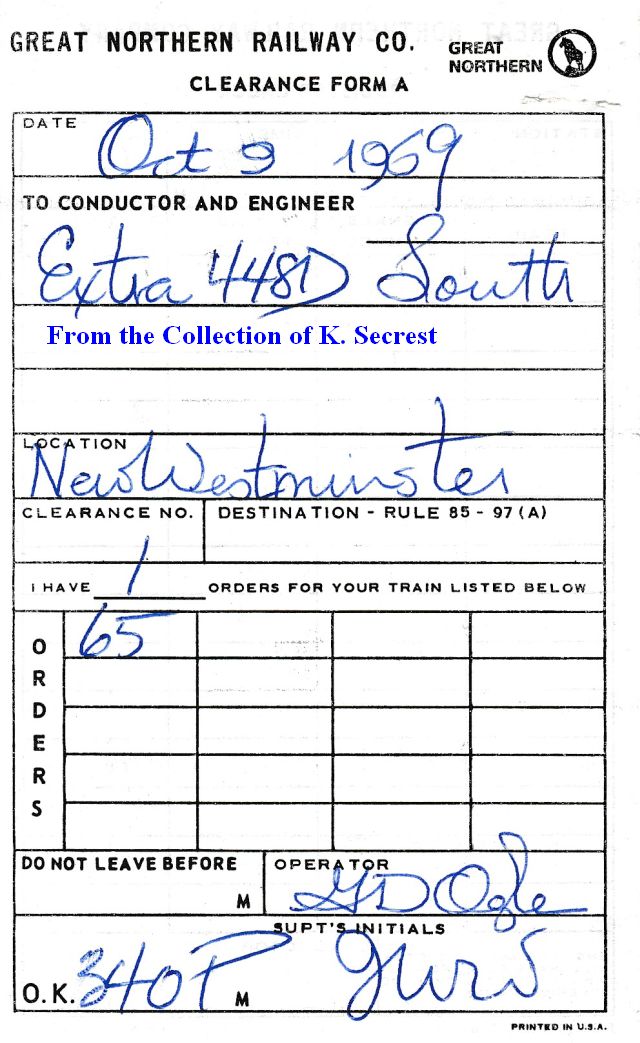 GREAT NORTHERN RAILWAY CO.
GREAT
NORTHERN
CLEARANCE FORM A
DATE
Oct 9 1969
TO CONDUCTOR AND ENGINEER
Extra 448D South
From the Collection of K. Secrest
LOCATION
New Westminster
CLEARANCE NO.
DESTINATION - RULE 85 - 97 (A)
I HAVE 1 ORDERS FOR YOUR TRAIN LISTED BELOW
ORDERS
65
DO NOT LEAVE BEFORE
M
OPERATOR
GD Ogle
SUPT'S INITIALS
O.K. 340 P M
PRINTED IN U.S.A.